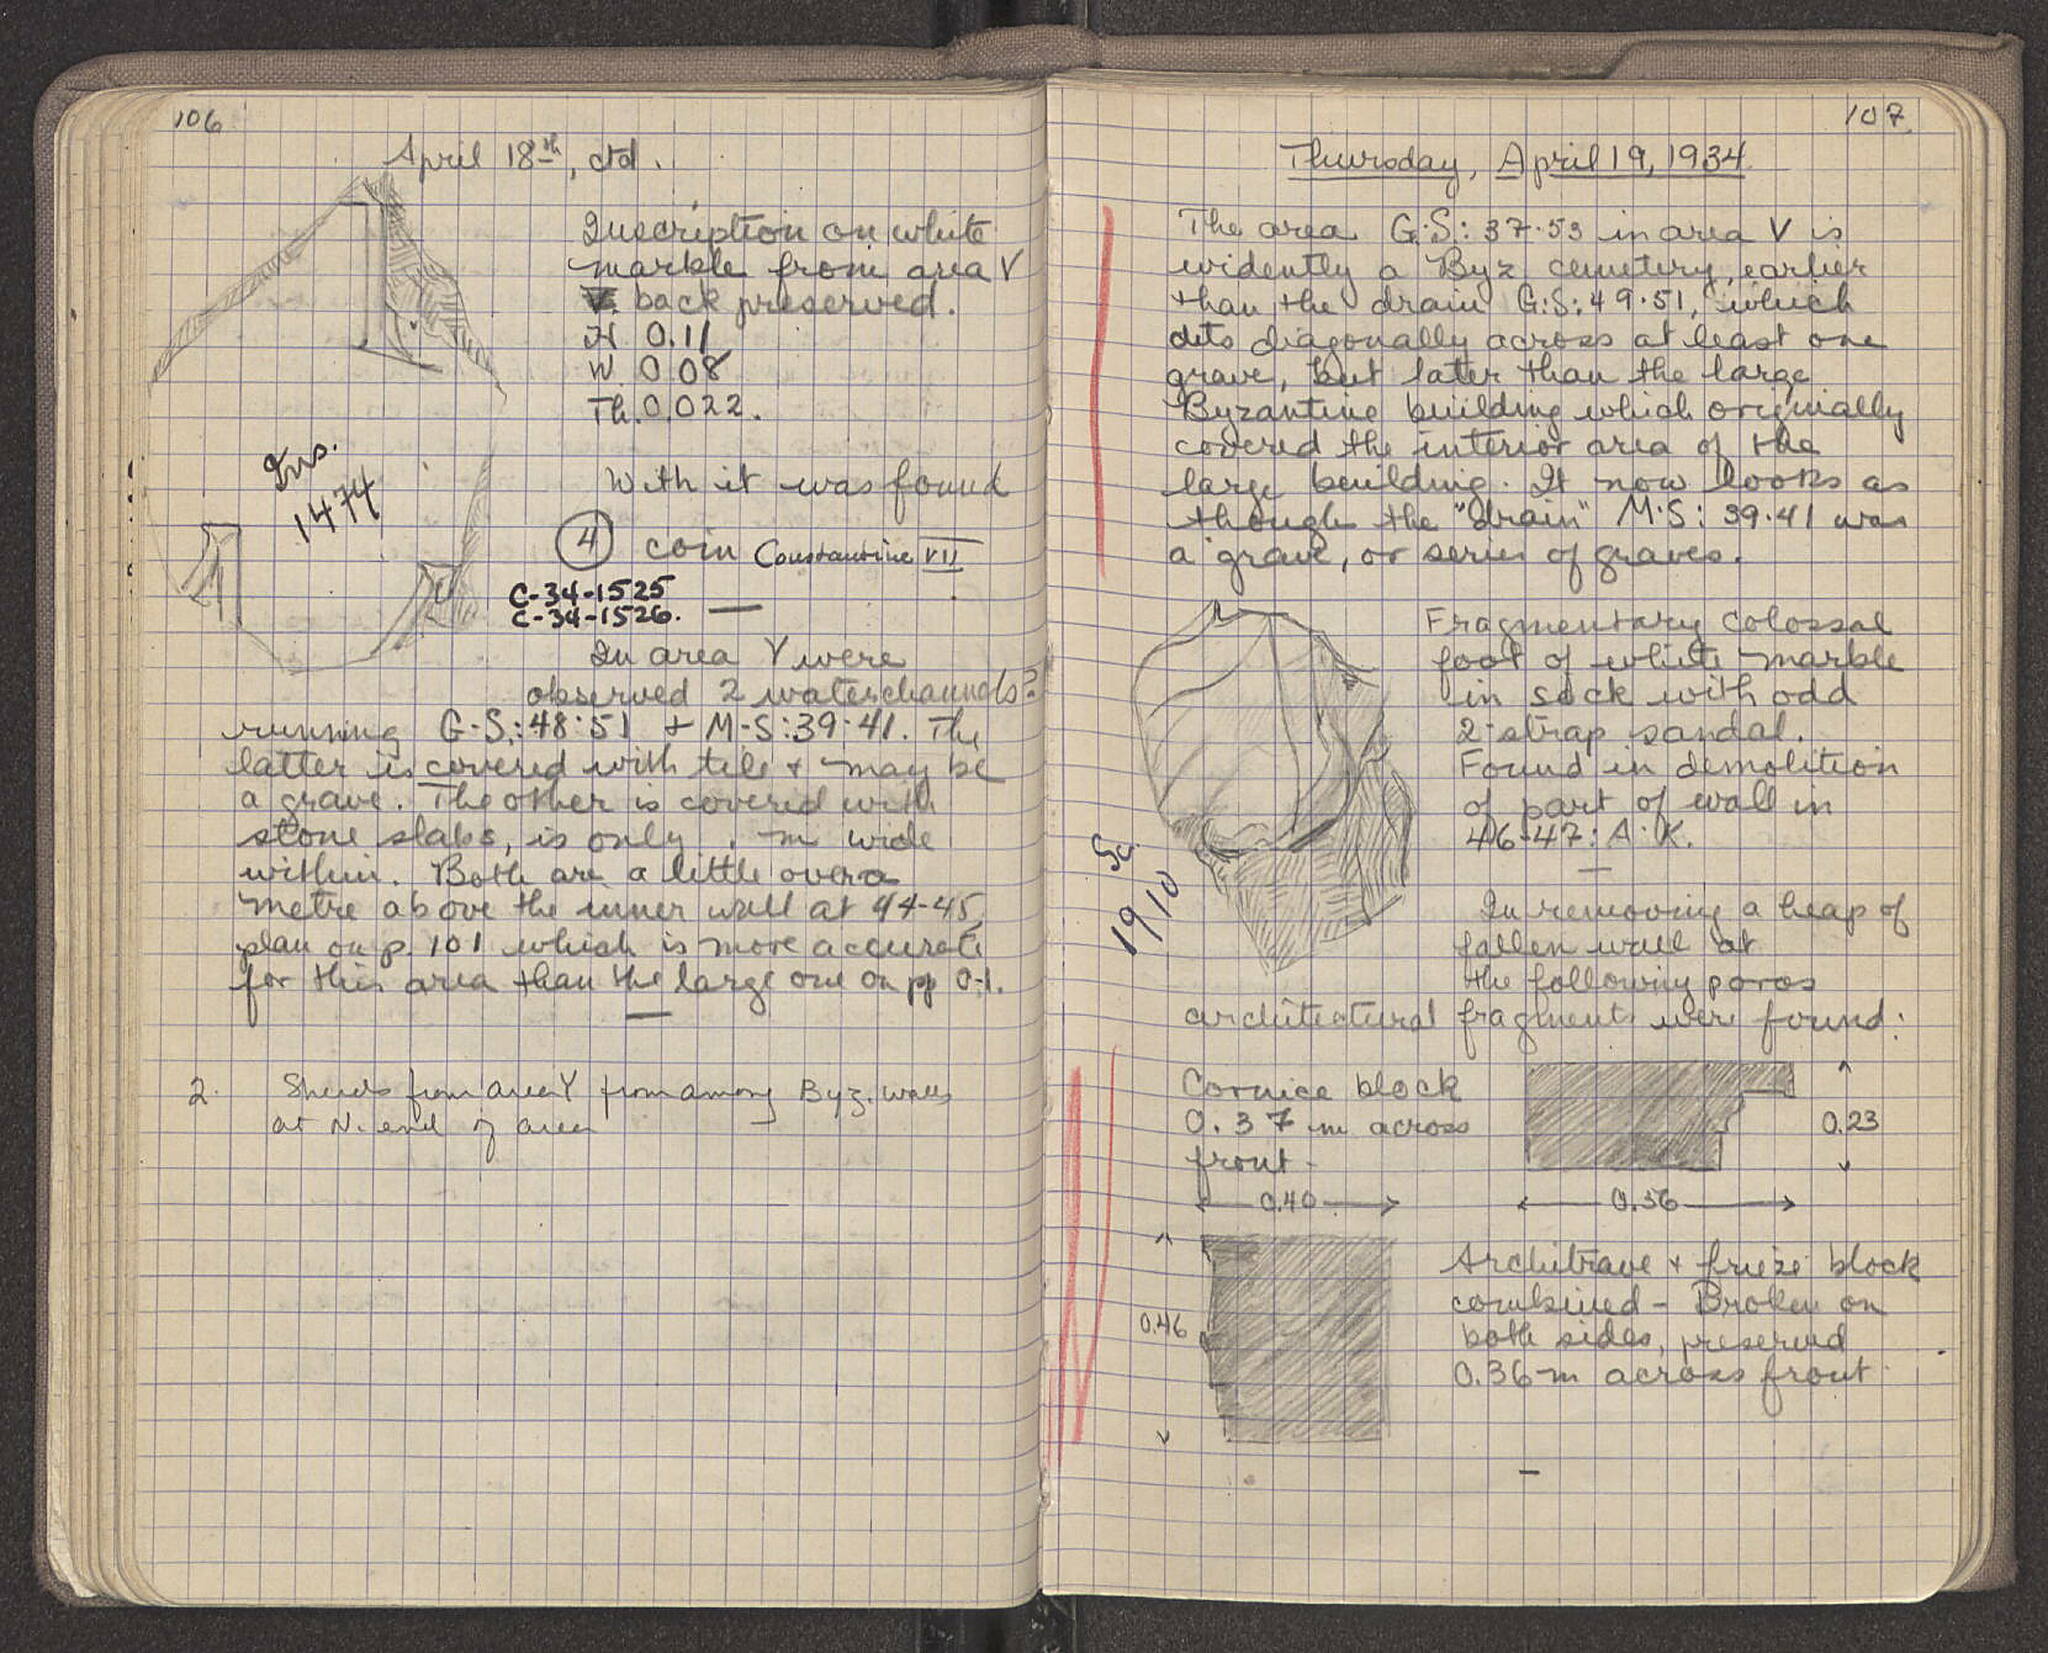 106
April 18th, ctd.
Inscription on white
marble from area V
back preserved.
H 0.11
W. 0.08
Th. 0.022.
Ins.
1474
With it was found
4 coin Constantine VII
C-34-1525
C-34-1526.
In area V were
observed 2 waterchannels?
running G-S.:48:51 + M-S:39-41. The
latter is covered with tile + may be
a grave. The other is covered with
stone slabs, is only . m wide
within. Both are a little over a
metre above the inner wall at 44-45,
plan on p. 101 which is more accurate
for this area than the large one on pp 0-1.
2. Sherds from area V from among Byz. walls
at N. end of area
107
Thursday, April 19, 1934
The area G.S.: 37-53 in area V is
evidently a Byz cemetery, earlier
than the drain G:S:49-51, which
cuts diagonally across at least one
grave, but later than the large
Byzantine building which originally
covered the interior area of the
large building. It now looks as
though the "drain" M-S: 39-41 was
a grave, or series of graves.
Fragmentary colossal
foot of white marble
in sock with odd
2-strap sandal.
Found in demolition
of part of wall in
46-47: A-K.
Sc.
19/10
In removing a heap of
fallen wall at
the following poros
architectural fragments were found:
Cornice block
0.37 m across
front-
0.23
0.40
0.56
0.46
Architrave + frieze block
combined - Broken on
both sides, preserved
0.36 m across front